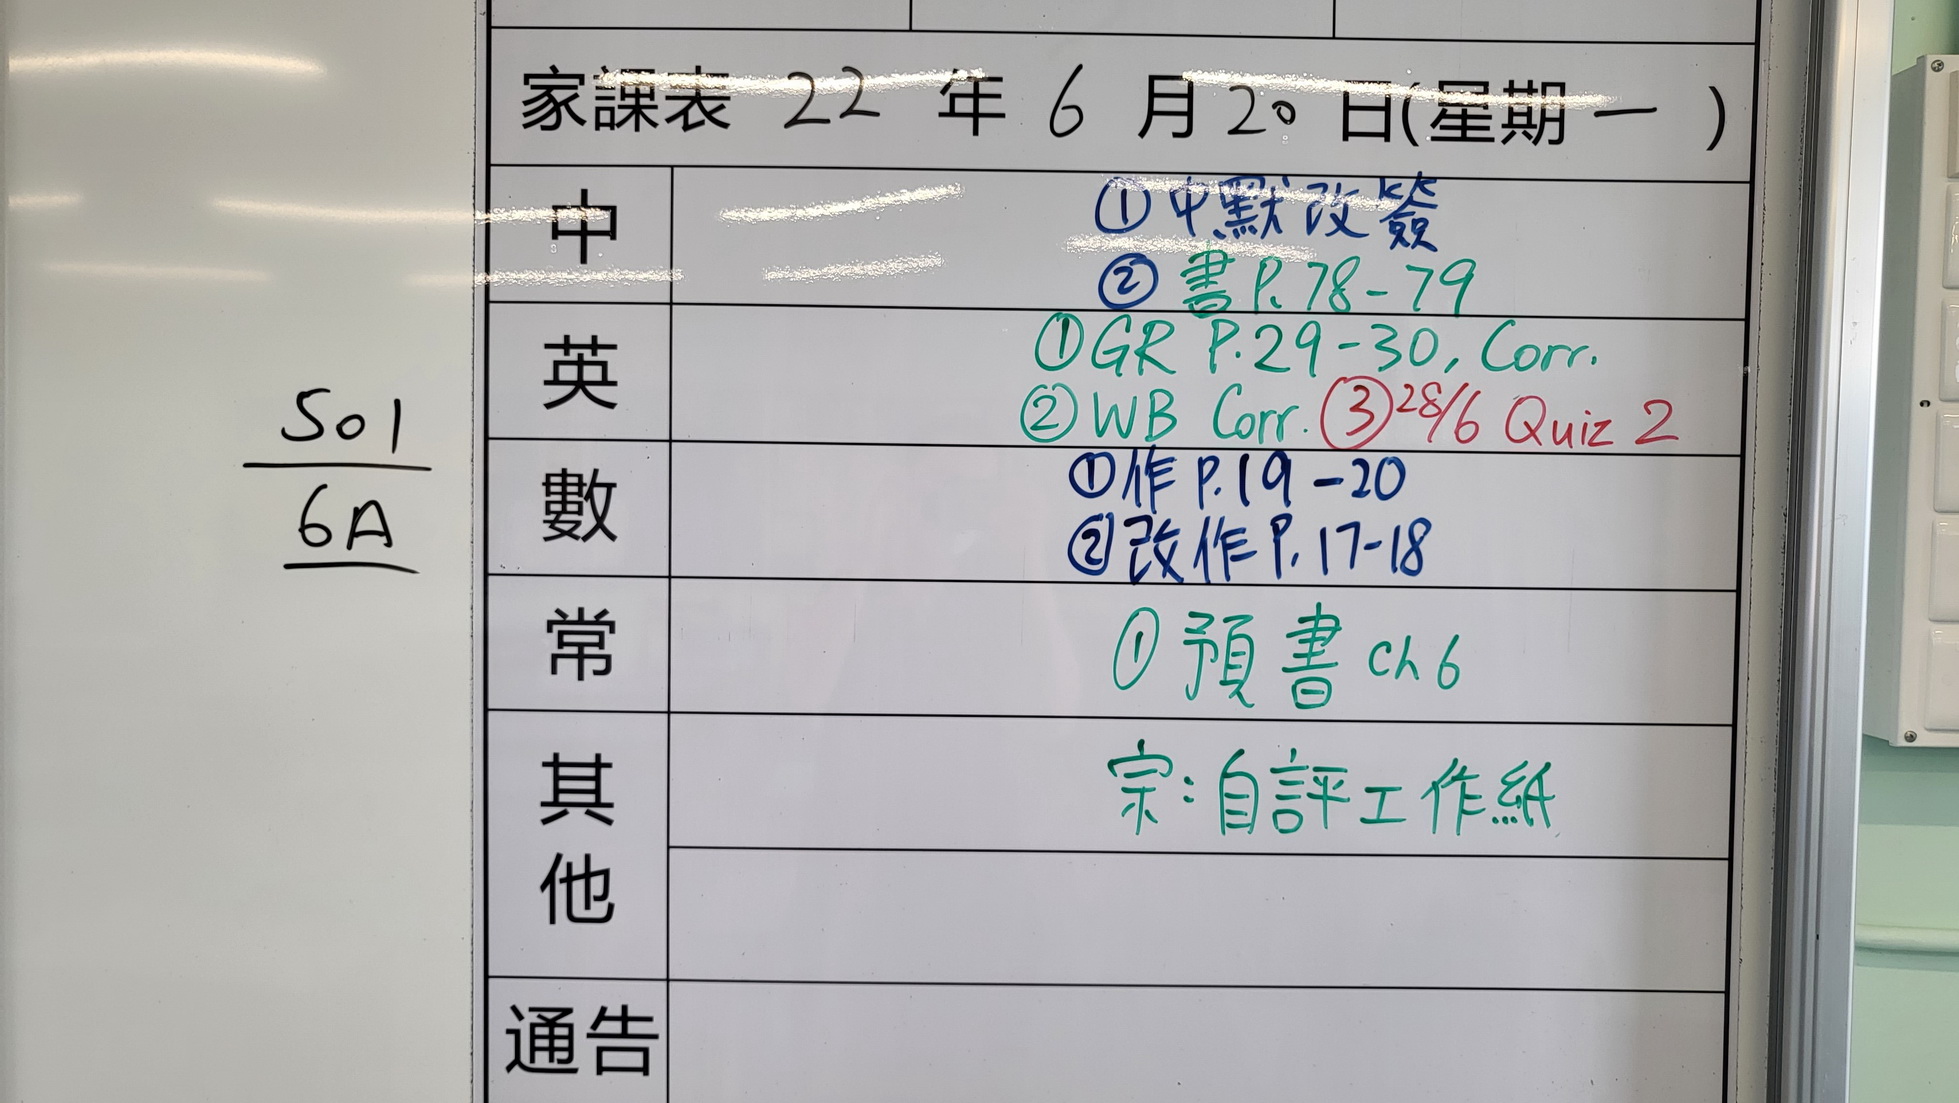 家課表 22 年 6 月 20 日(星期一 )
501
6A
中
①中默改簽
②書P.78-79
英
①GR P.29-30, Corr.
②WB Corr. ③28/6 Quiz 2
數
①作P.19-20
②改作P.17-18
常
①預書ch6
其他
宗:自評工作紙
通告